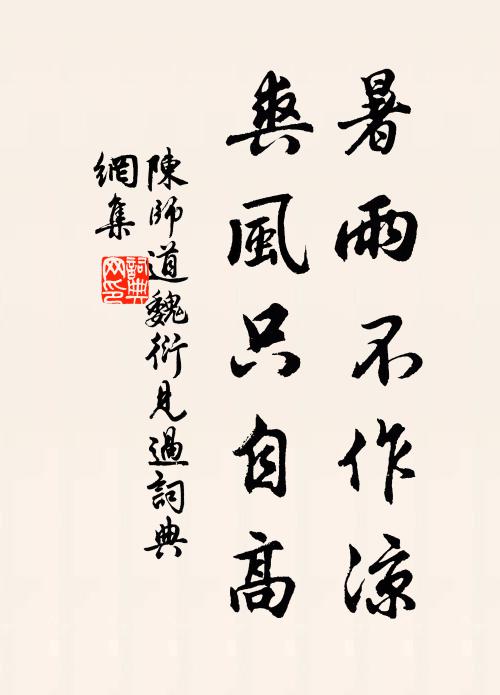 暑雨不作涼
爽風只自高
陳師道魏衍見過詞典
網集
詞典
网印